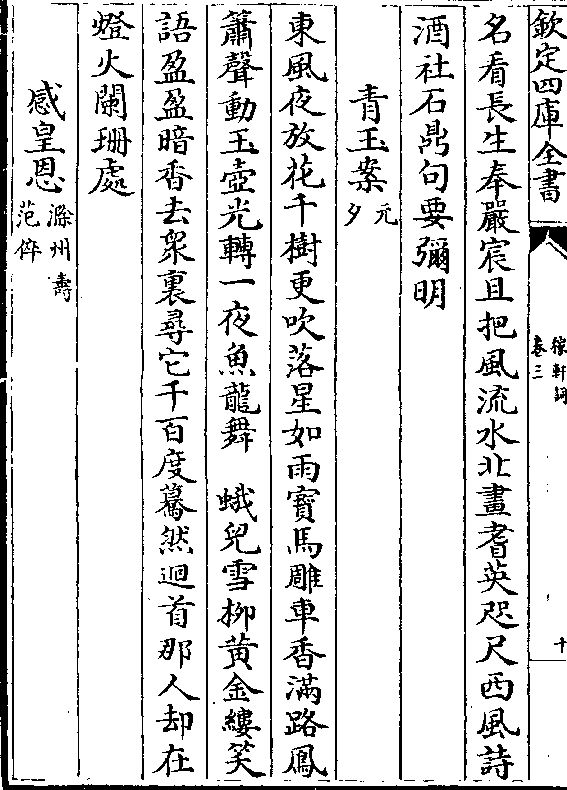 欽定四庫全書
稼軒詞
卷三
十
名看長生奉嚴宸且把風流水北畫耆英咫尺西風詩
酒社石鼎句要彌明
青玉案
元
夕
東風夜放花千樹更吹落星如雨寳馬雕車香滿路鳳
簫聲動玉壺光轉一夜魚龍舞　蛾兒雪柳黄金縷笑
語盈盈暗香去衆裏尋它千百度驀然迴首那人却在
燈火闌珊處
感皇恩
滁州壽
范倅